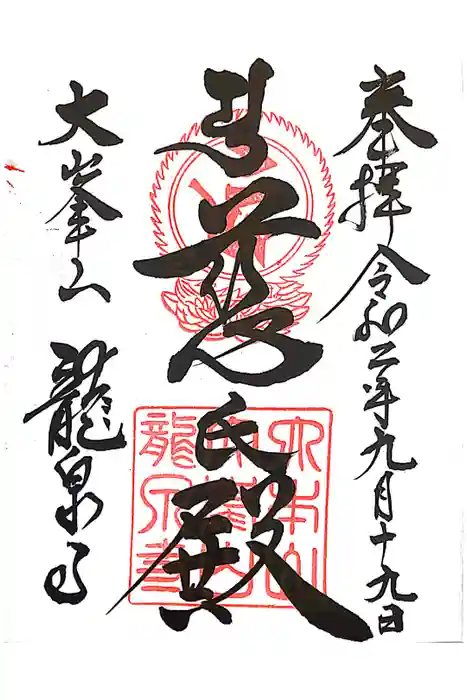 奉拝 令和二年九月十九日
慈氏殿
大峯山 龍泉寺
大本山
龍泉寺